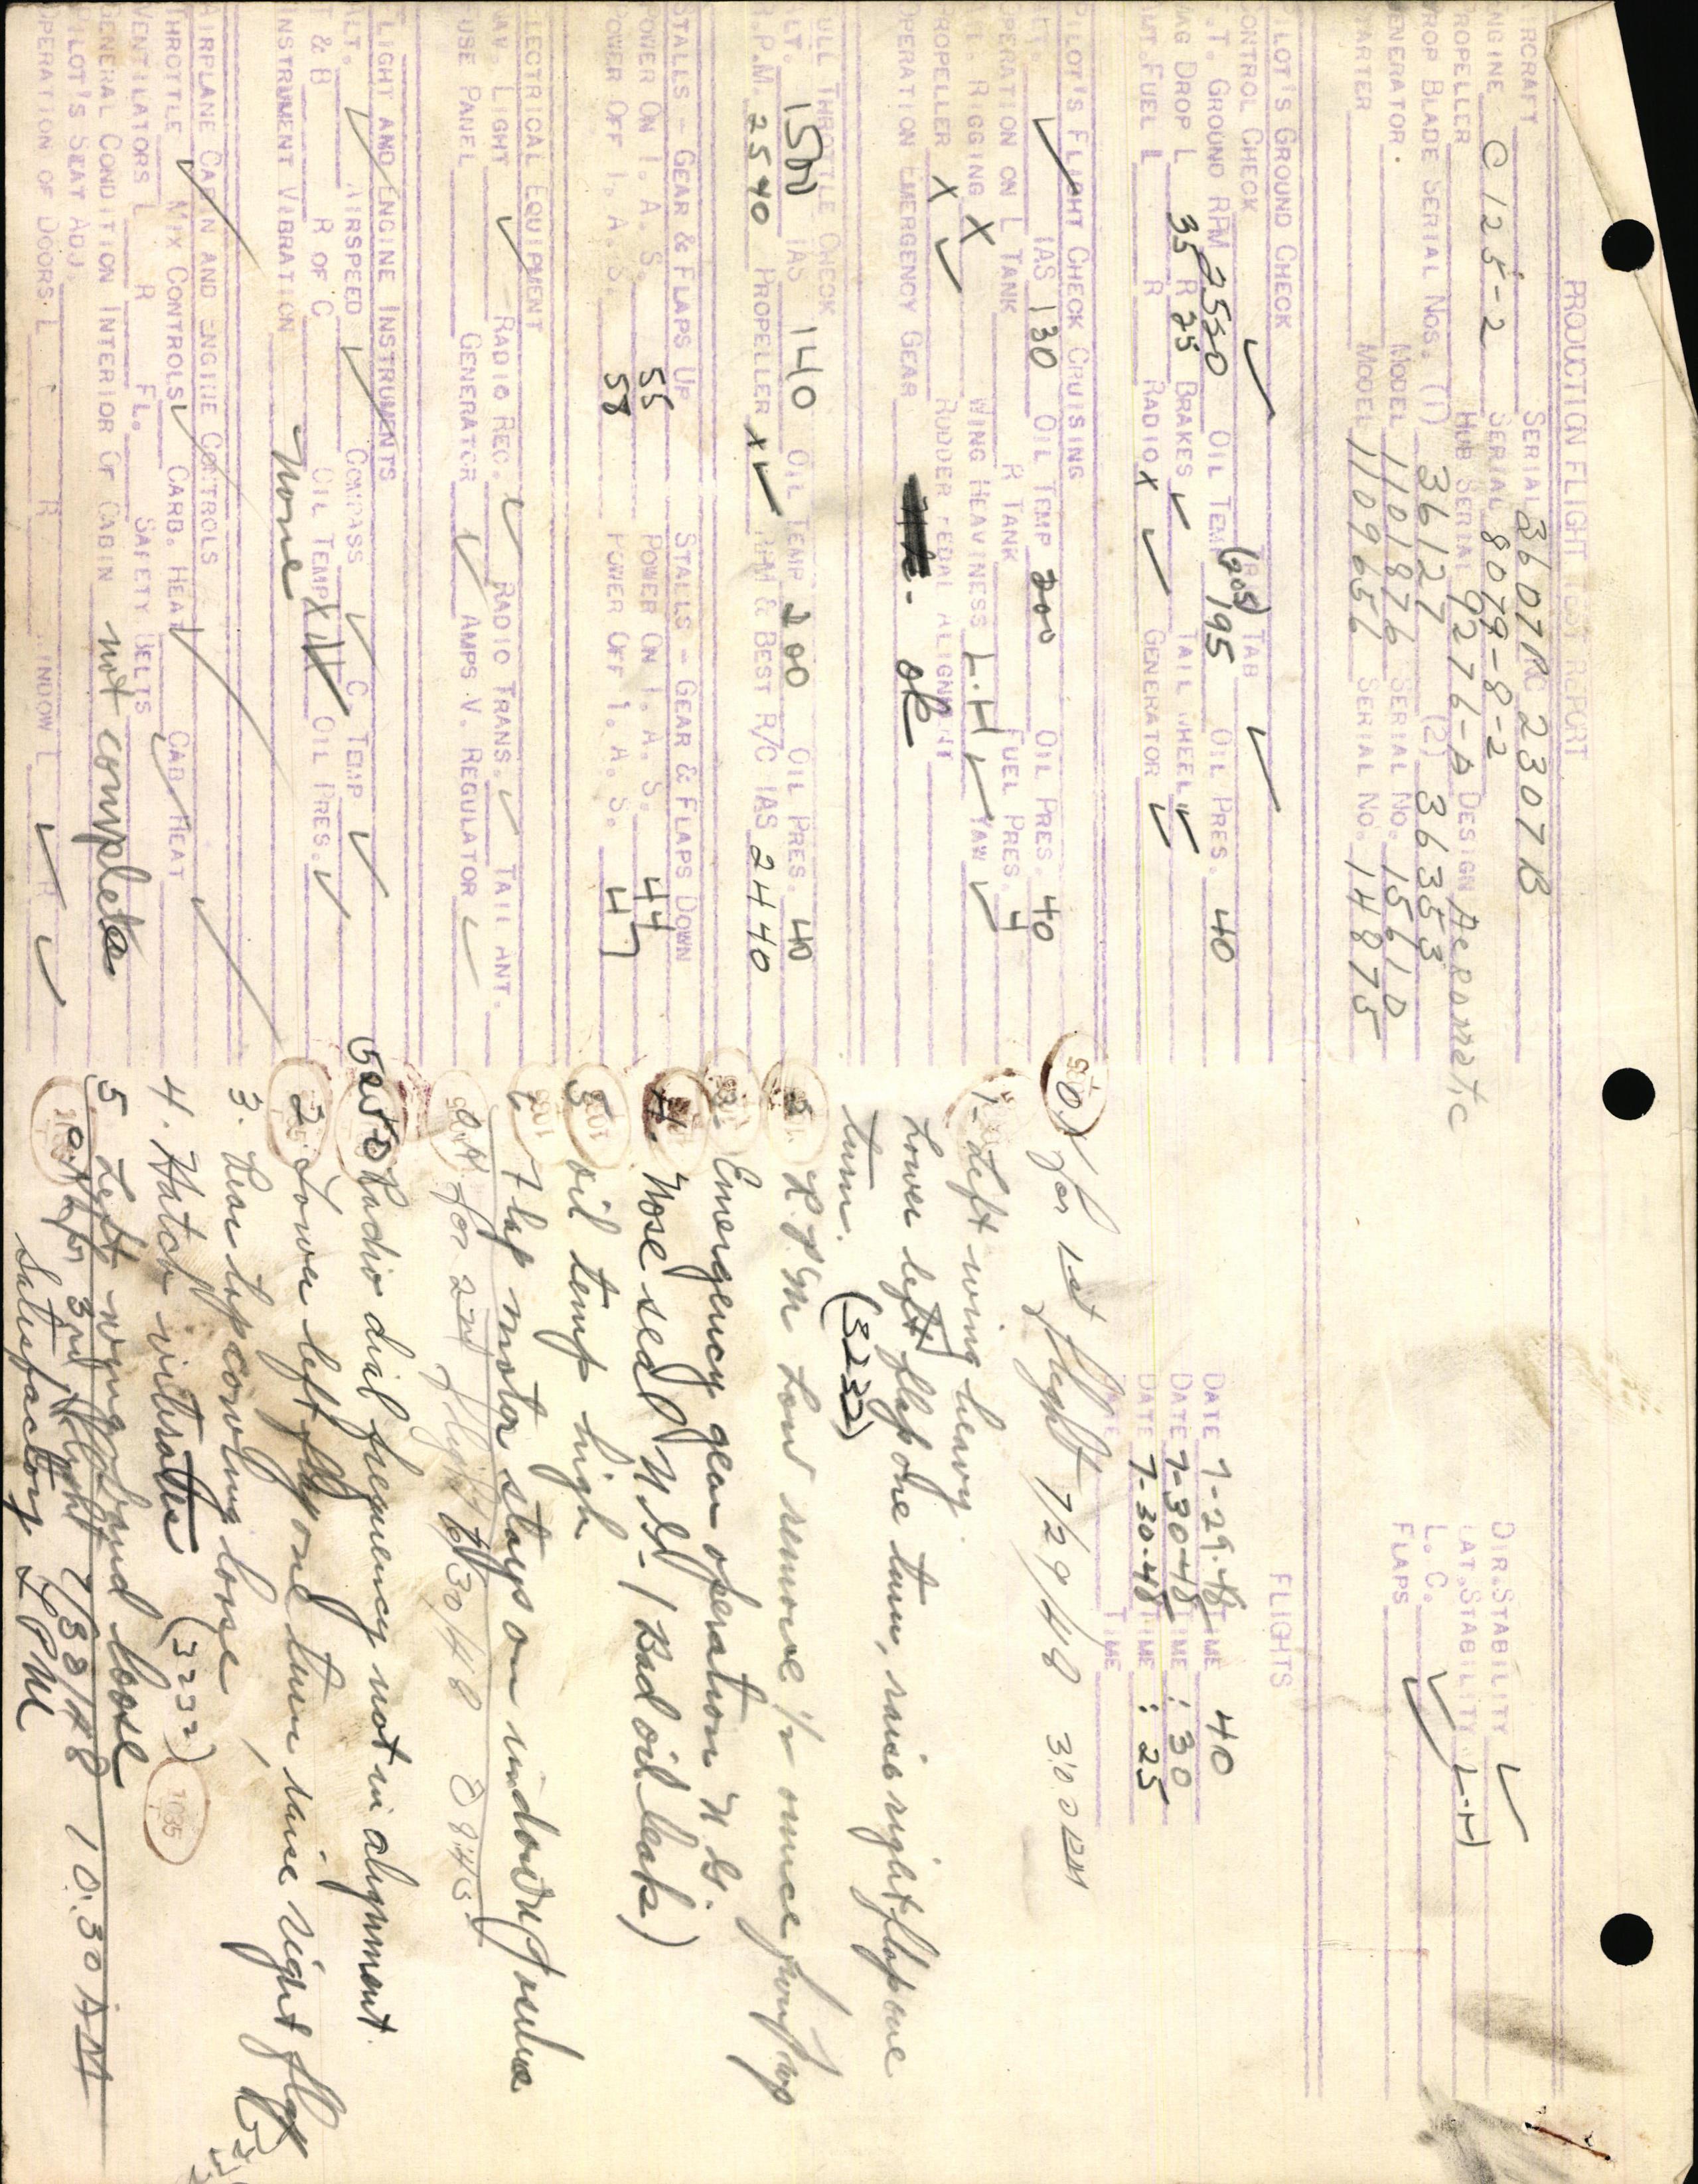 PRODUCTION FLIGHT TEST REPORT
AIRCRAFT SERIAL 3607RC 2307B
ENGINE C 125-2 SERIAL 8079-8-2
PROPELLER HUB SERIAL 9276-A DESIGN Aeromatic
PROP BLADE SERIAL NOS. (1) 36127 (2) 36353
GENERATOR. MODEL 1101876 SERIAL NO. 1561D
STARTER MODEL 1109656 SERIAL NO. 14875
DIR.STABILITY ✓
LAT.STABILITY L-H
L. C. ✓
FLAPS ✓
PILOT'S GROUND CHECK
CONTROL CHECK ✓ TAB ✓
S.T. GROUND RPM 2550 OIL TEMP (205) 195 OIL PRES. 40
MAG DROP L 35 R 25 BRAKES ✓ TAIL WHEEL ✓
AUT.FUEL L R RADIO X ✓ GENERATOR ✓
FLIGHTS
DATE 7-29-48 TIME 40
DATE 7-30-48 TIME : 30
DATE 7-30-48 TIME : 25
DATE TIME
PILOT'S FLIGHT CHECK CRUISING
ALT. ✓ IAS 130 OIL TEMP 200 OIL PRES. 40
OPERATION ON L TANK R TANK FUEL PRES. 4
RIGGING X WING HEAVINESS L.H ✓ YAW ✓
PROPELLER X ✓ RUDDER PEDAL ALIGNMENT
OPERATION EMERGENCY GEAR ok
FULL THROTTLE CHECK
ALT. 1500 IAS 140 OIL TEMP 200 OIL PRES. 40
R.P.M. 2540 PROPELLER X ✓ RPM & BEST R/C IAS 2440
STALLS - GEAR & FLAPS UP STALLS - GEAR & FLAPS DOWN
POWER ON I. A. S. 55 POWER ON I. A. S. 44
POWER OFF I. A. S. 58 POWER OFF I. A. S. 47
ELECTRICAL EQUIPMENT
NAV. LIGHT ✓ RADIO REC. ✓ RADIO TRANS. ✓ TAIL ANT.
FUSE PANEL GENERATOR ✓ AMPS V. REGULATOR ✓
FLIGHT AND ENGINE INSTRUMENTS
ALT. ✓ AIRSPEED ✓ COMPASS ✓ C. TEMP ✓
T & B R OF C OIL TEMP X OIL PRES. ✓
INSTRUMENT VIBRATION None
AIRPLANE CABIN AND ENGINE CONTROLS
THROTTLE ✓ MIX CONTROLS ✓ CARB. HEAT ✓ CAB HEAT ✓
VENTILATORS L R FL. SAFETY BELTS
GENERAL CONDITION INTERIOR OF CABIN not complete
PILOT'S SEAT ADJ.
OPERATION OF DOORS L R WINDOW L ✓ R ✓
O.K. for 1st flight 7/29/48 3:02 PM
1- Left wing heavy.
Lower left flap one turn, raise right flap one
turn. (3232)
2. R.P.M Low remove 1/2 ounce from prop
3. Emergency gear operation N.G.
4. Nose seal N.G. (Bad oil leak)
5 oil temp high
6 Flap motor stays on in down position
O.K. for 2nd flight 7/30/48 8:45
Radio dial frequency not in alignment.
2. Lower left flap one turn, raise right flap
3. Rear top cowling loose
4. Hatch vibrates (3232)
5 Left wing band loose
O.K. for 3rd flight 7/30/48 10:30 AM
Satisfactory